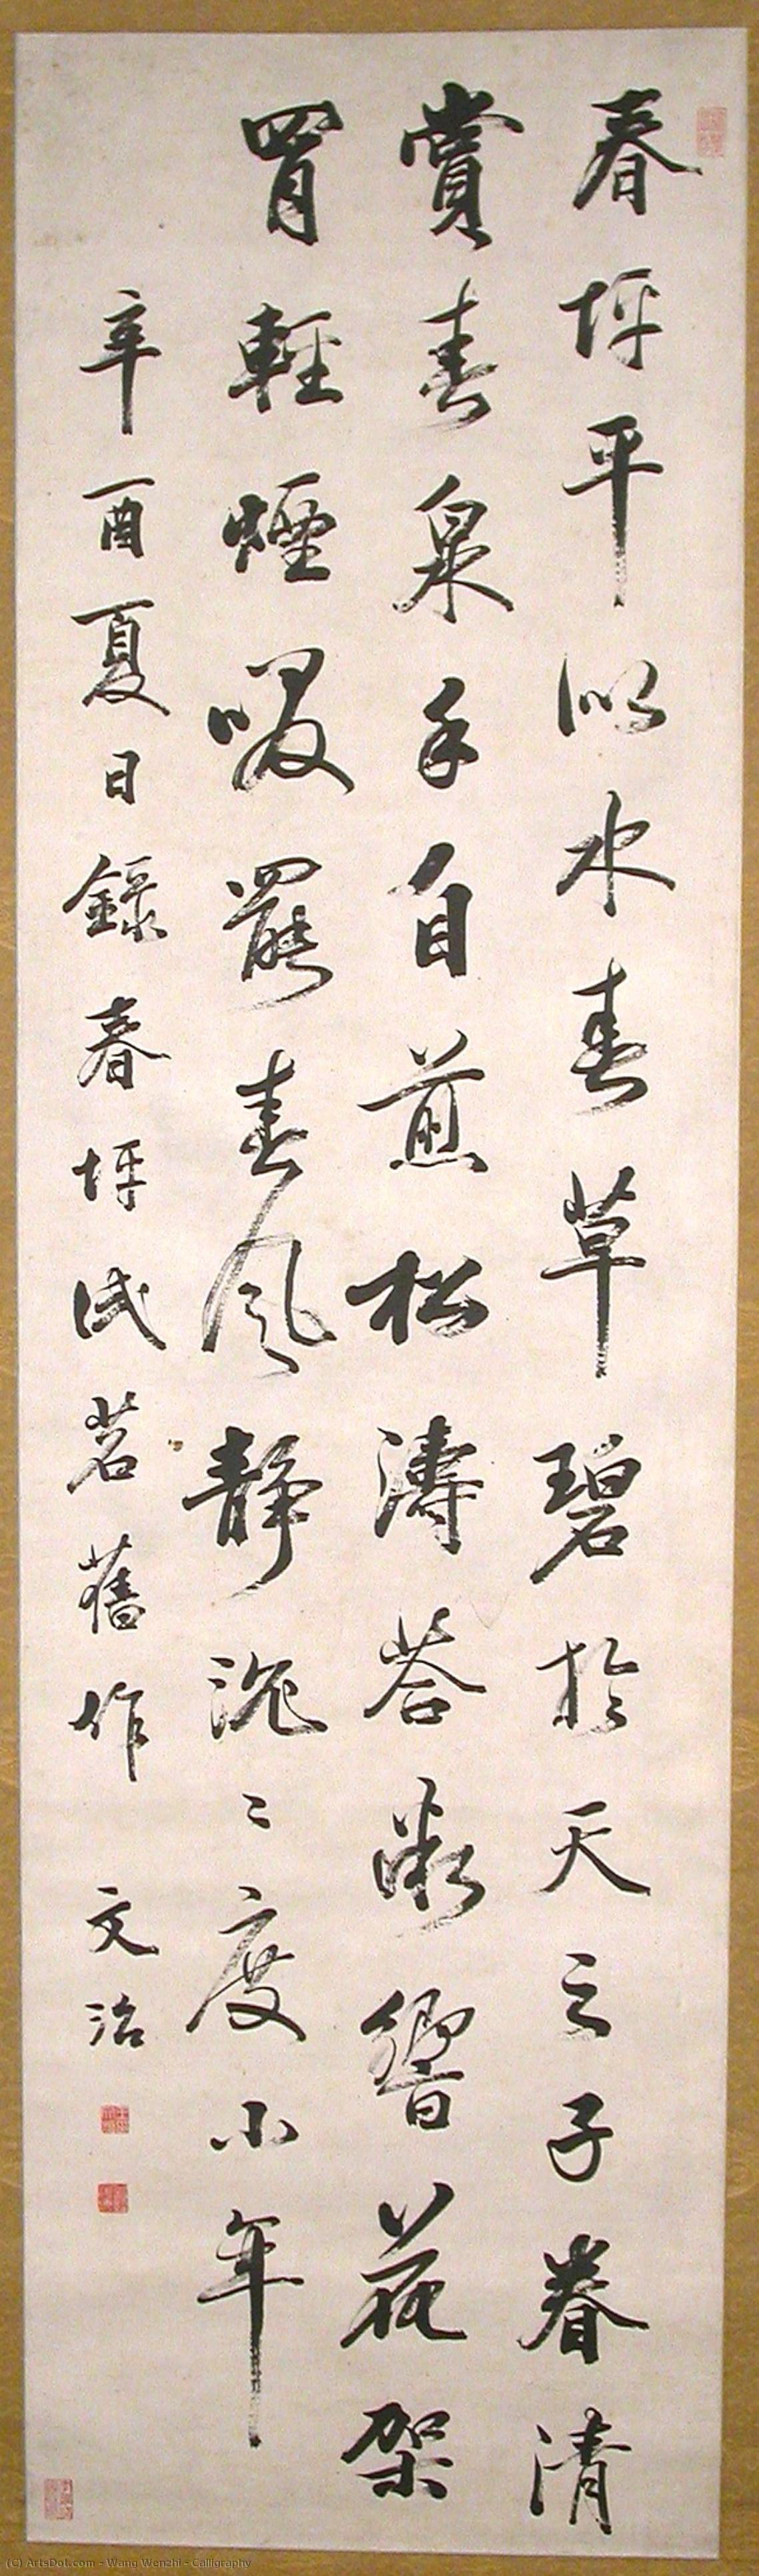 春坪平似水春草碧於天之子眷清
賞春泉手自煎松濤答漱響花架
罥輕煙啜罷春風靜沉〻度小年
辛酉夏日錄春坪試茗舊作 文治
(C) ArtsDot.com - Wang Wenzhi - Calligraphy